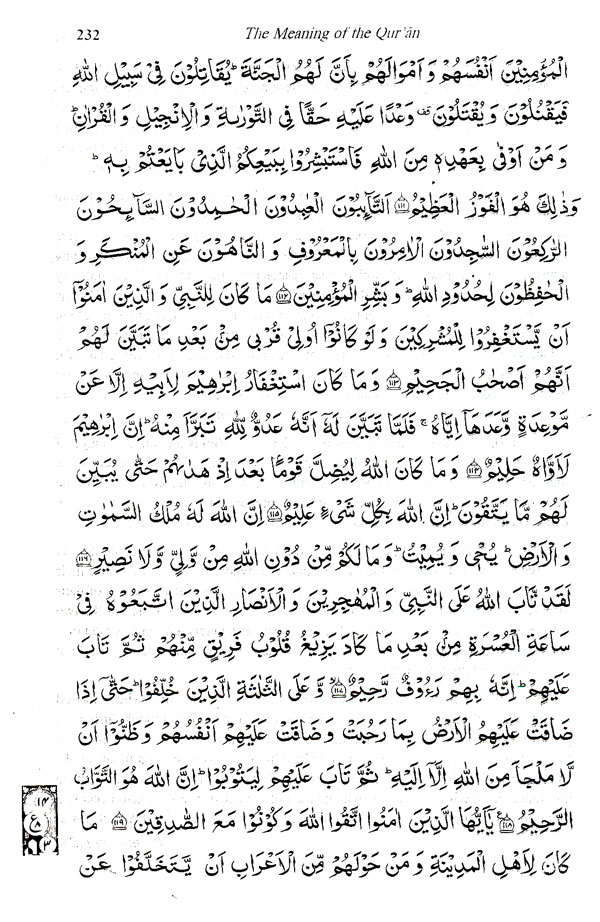 232
The Meaning of the Qur'ān
الْمُؤْمِنِيْنَ اَنْفُسَهُمْ وَ اَمْوَالَهُمْ بِاَنَّ لَهُمُ الْجَنَّةَ ؕ يُقَاتِلُوْنَ فِيْ سَبِيْلِ اللّٰهِ
فَيَقْتُلُوْنَ وَ يُقْتَلُوْنَ ۫ وَعْدًا عَلَيْهِ حَقًّا فِي التَّوْرٰىةِ وَ الْاِنْجِيْلِ وَ الْقُرْاٰنِ ؕ
وَ مَنْ اَوْفٰى بِعَهْدِهٖ مِنَ اللّٰهِ فَاسْتَبْشِرُوْا بِبَيْعِكُمُ الَّذِيْ بَايَعْتُمْ بِهٖ ؕ
وَذٰلِكَ هُوَ الْفَوْزُ الْعَظِيْمُ ﴿۱۱۱﴾ اَلتَّآئِبُوْنَ الْعٰبِدُوْنَ الْحٰمِدُوْنَ السَّآئِحُوْنَ
الرّٰكِعُوْنَ السّٰجِدُوْنَ الْاٰمِرُوْنَ بِالْمَعْرُوْفِ وَ النَّاهُوْنَ عَنِ الْمُنْكَرِ وَ
الْحٰفِظُوْنَ لِحُدُوْدِ اللّٰهِ ؕ وَ بَشِّرِ الْمُؤْمِنِيْنَ ﴿۱۱۲﴾ مَا كَانَ لِلنَّبِيِّ وَ الَّذِيْنَ اٰمَنُوْۤا
اَنْ يَّسْتَغْفِرُوْا لِلْمُشْرِكِيْنَ وَ لَوْ كَانُوْۤا اُولِيْ قُرْبٰى مِنْۢ بَعْدِ مَا تَبَيَّنَ لَهُمْ
اَنَّهُمْ اَصْحٰبُ الْجَحِيْمِ ﴿۱۱۳﴾ وَ مَا كَانَ اسْتِغْفَارُ اِبْرٰهِيْمَ لِاَبِيْهِ اِلَّا عَنْ
مَّوْعِدَةٍ وَّعَدَهَاۤ اِيَّاهُ ۚ فَلَمَّا تَبَيَّنَ لَهٗۤ اَنَّهٗ عَدُوٌّ لِّلّٰهِ تَبَرَّاَ مِنْهُ ؕ اِنَّ اِبْرٰهِيْمَ
لَاَوَّاهٌ حَلِيْمٌ ﴿۱۱۴﴾ وَ مَا كَانَ اللّٰهُ لِيُضِلَّ قَوْمًۢا بَعْدَ اِذْ هَدٰىهُمْ حَتّٰى يُبَيِّنَ
لَهُمْ مَّا يَتَّقُوْنَ ؕ اِنَّ اللّٰهَ بِكُلِّ شَيْءٍ عَلِيْمٌ ﴿۱۱۵﴾ اِنَّ اللّٰهَ لَهٗ مُلْكُ السَّمٰوٰتِ
وَ الْاَرْضِ ؕ يُحْيٖ وَ يُمِيْتُ ؕ وَ مَا لَكُمْ مِّنْ دُوْنِ اللّٰهِ مِنْ وَّلِيٍّ وَّ لَا نَصِيْرٍ ﴿۱۱۶﴾
لَقَدْ تَّابَ اللّٰهُ عَلَى النَّبِيِّ وَ الْمُهٰجِرِيْنَ وَ الْاَنْصَارِ الَّذِيْنَ اتَّبَعُوْهُ فِيْ
سَاعَةِ الْعُسْرَةِ مِنْۢ بَعْدِ مَا كَادَ يَزِيْغُ قُلُوْبُ فَرِيْقٍ مِّنْهُمْ ثُمَّ تَابَ
عَلَيْهِمْ ؕ اِنَّهٗ بِهِمْ رَءُوْفٌ رَّحِيْمٌ ﴿۱۱۷﴾ وَّ عَلَى الثَّلٰثَةِ الَّذِيْنَ خُلِّفُوْا ؕ حَتّٰۤى اِذَا
ضَاقَتْ عَلَيْهِمُ الْاَرْضُ بِمَا رَحُبَتْ وَ ضَاقَتْ عَلَيْهِمْ اَنْفُسُهُمْ وَ ظَنُّوْۤا اَنْ
لَّا مَلْجَاَ مِنَ اللّٰهِ اِلَّاۤ اِلَيْهِ ؕ ثُمَّ تَابَ عَلَيْهِمْ لِيَتُوْبُوْا ؕ اِنَّ اللّٰهَ هُوَ التَّوَّابُ
الرَّحِيْمُ ﴿۱۱۸﴾ يٰۤاَيُّهَا الَّذِيْنَ اٰمَنُوا اتَّقُوا اللّٰهَ وَ كُوْنُوْا مَعَ الصّٰدِقِيْنَ ﴿۱۱۹﴾ مَا
كَانَ لِاَهْلِ الْمَدِيْنَةِ وَ مَنْ حَوْلَهُمْ مِّنَ الْاَعْرَابِ اَنْ يَّتَخَلَّفُوْا عَنْ
۱۴
ع
۸
۳